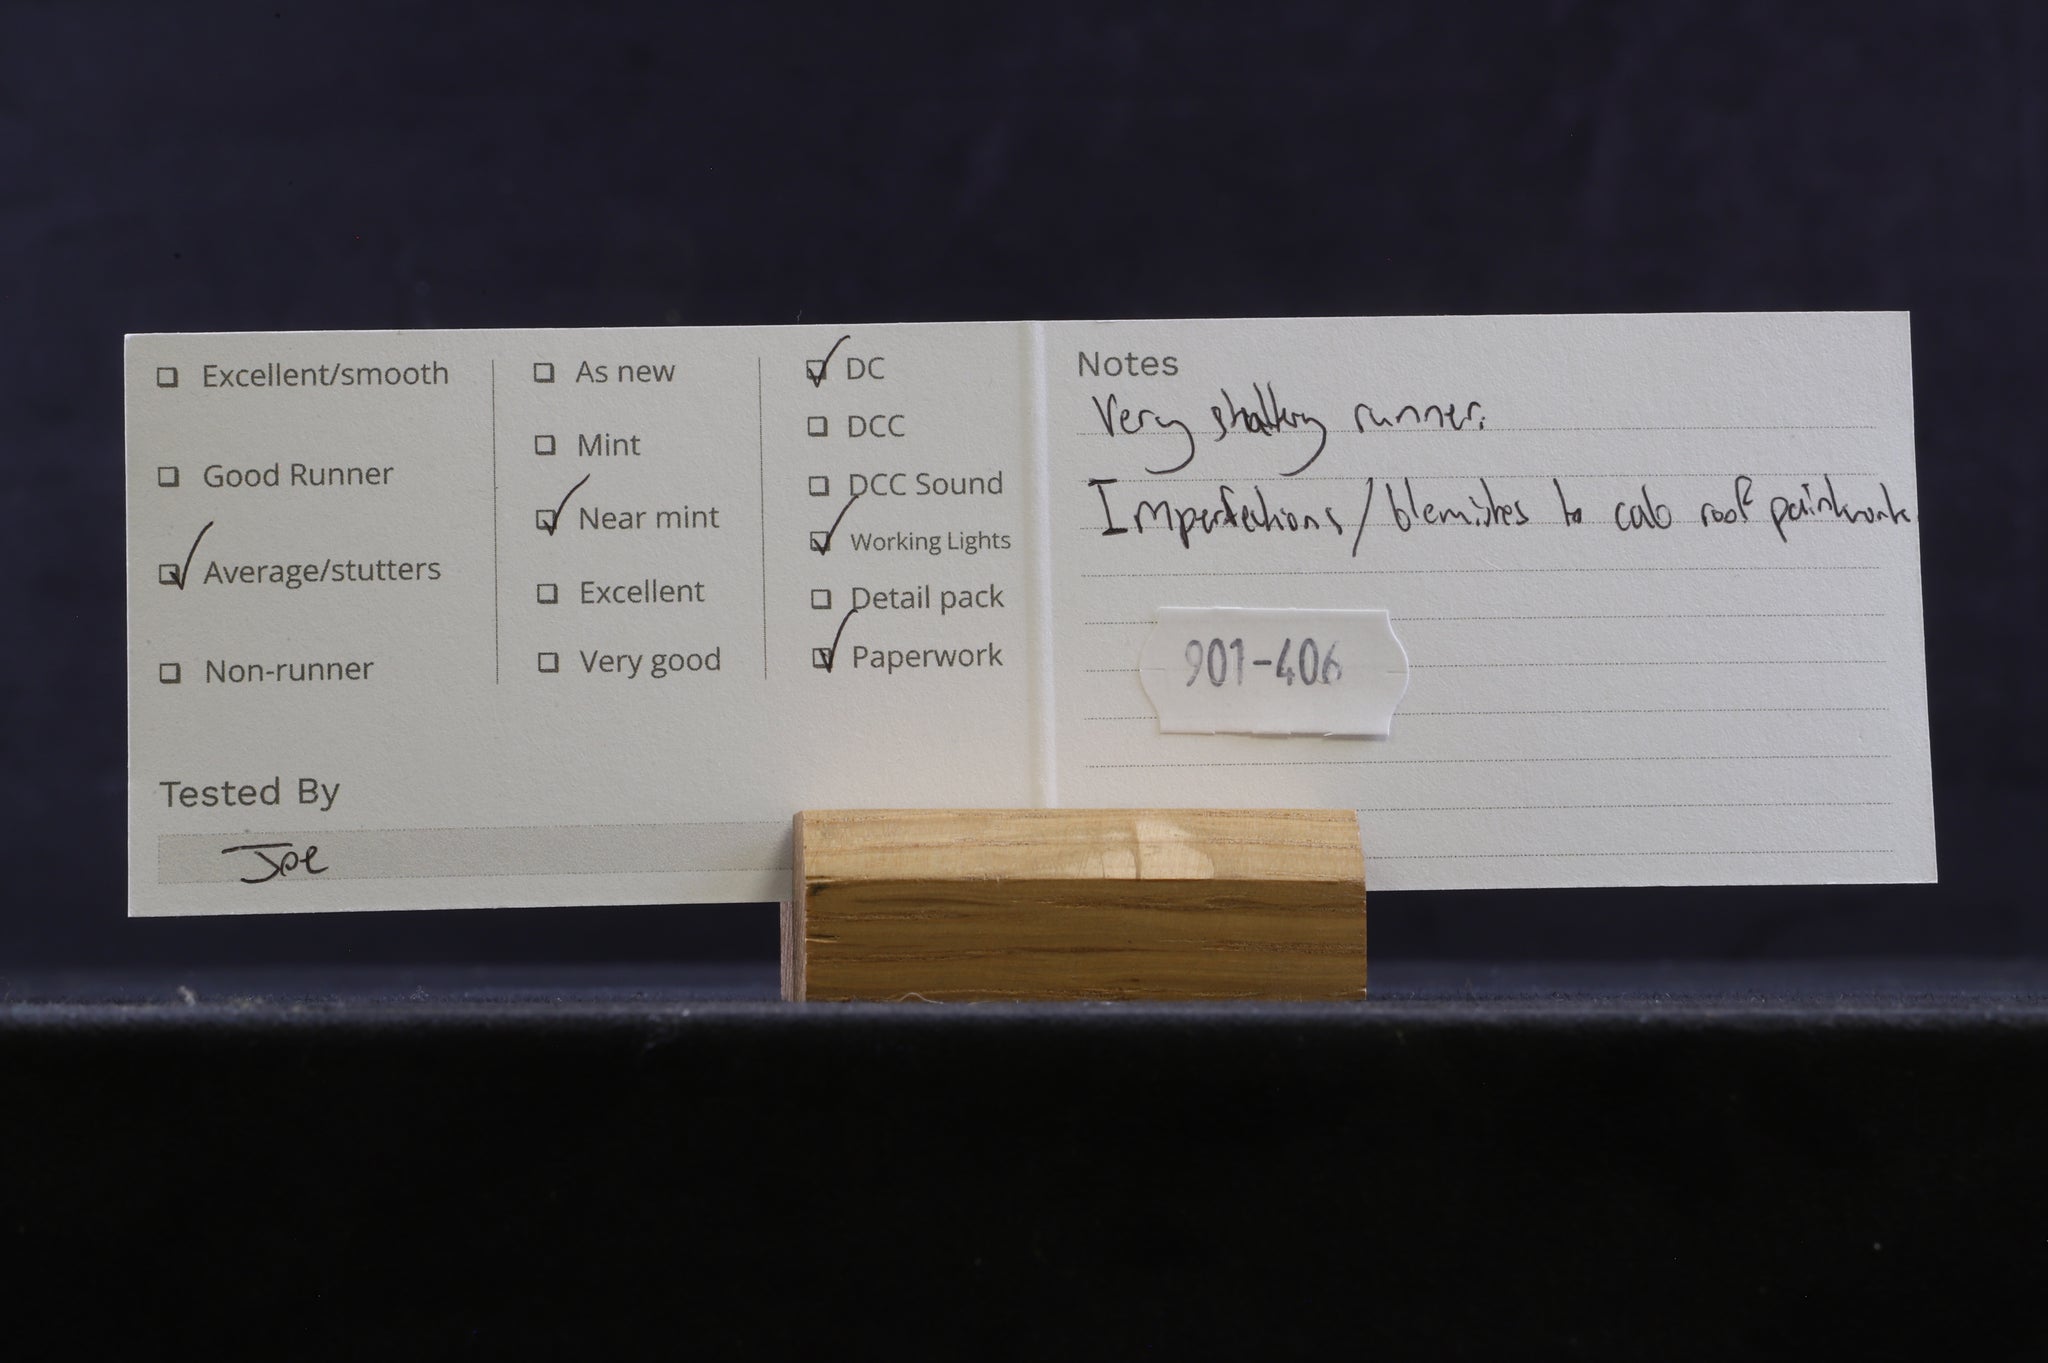 Excellent/smooth
Good Runner
Average/stutters
Non-runner
As new
Mint
Near mint
Excellent
Very good
DC
DCC
DCC Sound
Working Lights
Detail pack
Paperwork
Tested By
Joe
Notes
Very runner.
Imperfections/blemishes to cab roof paintwork
901-406